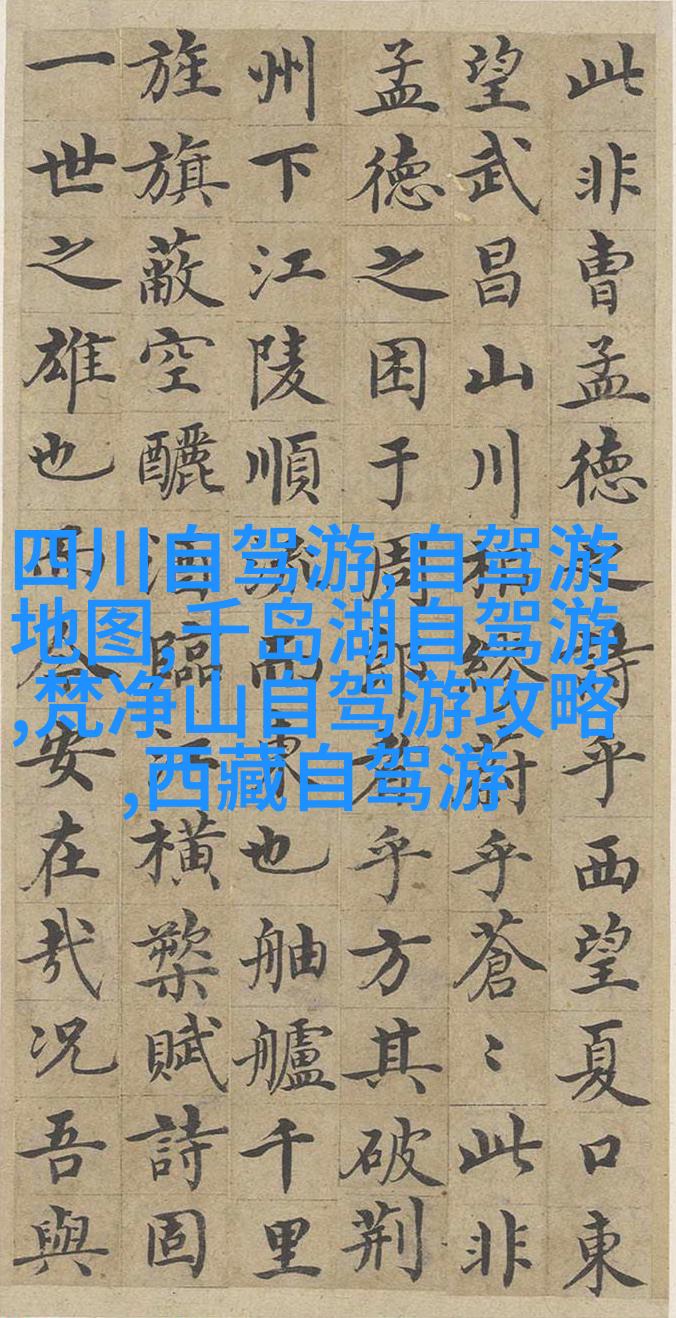 此非曹孟德之詩乎西望夏口東
望武昌山川相繆蔚乎蒼〻此非
孟德之困于周郎者乎方其破荆
州下江陵順流而東也舳艫千里
旌旗蔽空釃酒臨江橫槊賦詩固
一世之雄也而今安在哉况吾與
四川自驾游,自驾游
地图,千岛湖自驾游
,梵净山自驾游攻略
,西藏自驾游